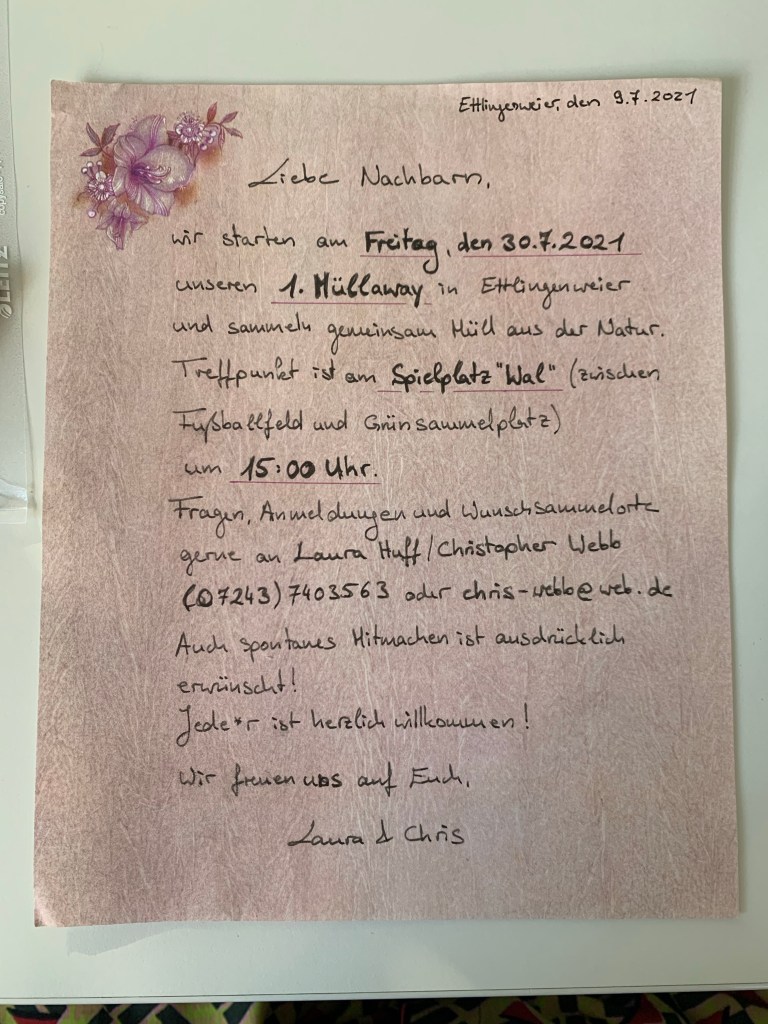 Ettlingenweier, den 9.7.2021
Liebe Nachbarn,
wir starten am Freitag, den 30.7.2021
unseren 1. Müllaway in Ettlingenweier
und sammeln gemeinsam Müll aus der Natur.
Treffpunkt ist am Spielplatz "Wal" (zwischen
Fußballfeld und Grünsammelplatz)
um 15:00 Uhr.
Fragen, Anmeldungen und Wunschsammelorte
gerne an Laura Huff/Christopher Webb
(07243) 7403563 oder chris-webb@web.de
Auch spontanes Mitmachen ist ausdrücklich
erwünscht!
Jede*r ist herzlich willkommen!
Wir freuen uns auf Euch,
Laura & Chris
LEITZ